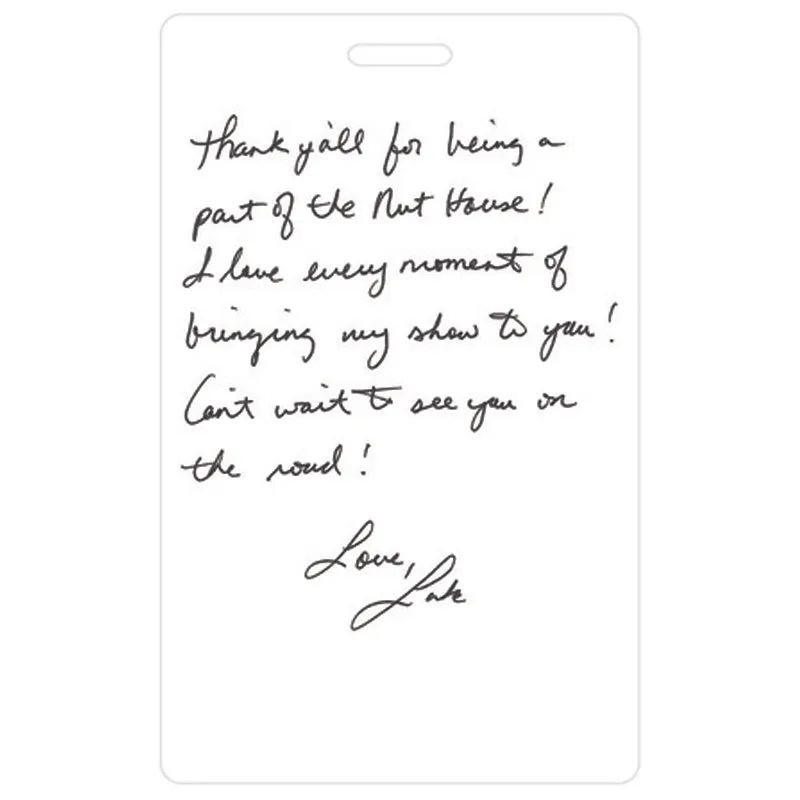 Thank y'all for being a
part of the Nut House!
I love every moment of
bringing my show to you!
Can't wait to see you on
the road!
Love,
Luke